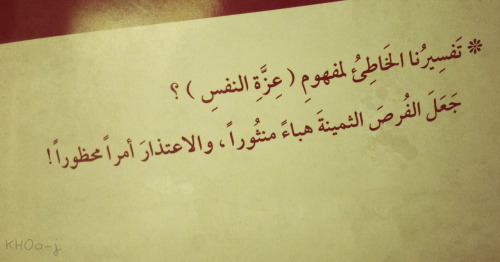 * تَفسِيرُنا الخَاطِئُ لمفهومِ ( عِزَّةِ النفسِ ) ؟
جَعَلَ الفُرصَ الثمينةَ هباءً منثُوراً ، والاعتذارَ أمراً محظوراً !
KHOo-j